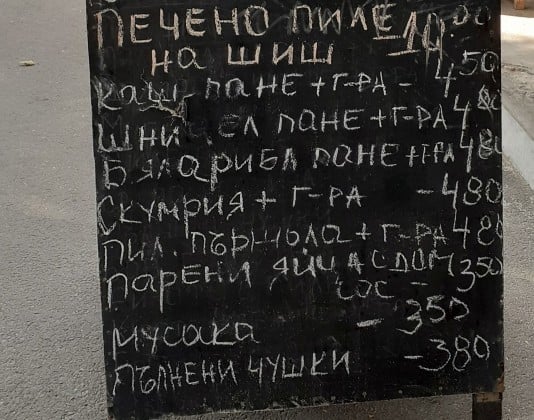 ПЕЧЕНО ПИЛЕ 10.00
НА ШИШ
КАШ ПАНЕ + Г-РА - 4,50
ШНИЦЕЛ ПАНЕ + Г-РА 4
БЯЛА РИБА ПАНЕ + Г-РА 480
СКУМРИЯ + Г-РА - 480
ПИЛ. ПЪРЖОЛА + Г-РА 480
ПАРЕНИ ЯЙЦА С ДОМ 350
СОС -
МУСАКА - 350
ПЪЛНЕНИ ЧУШКИ - 380